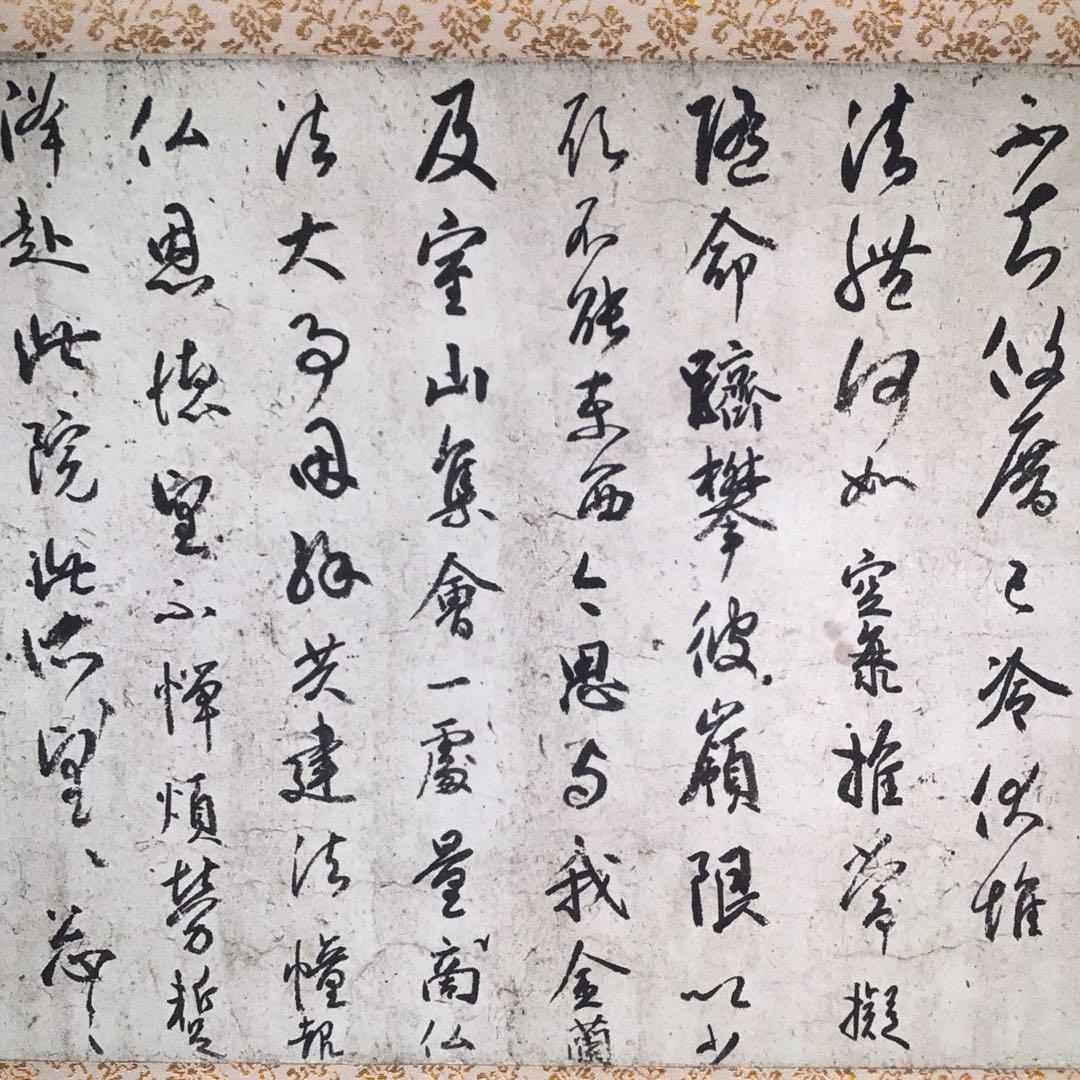 不知攸厝已冷伏惟
法體何如空海推常擬
随命躋攀彼嶺限以少
願不能東西今思与我金蘭
及室山集會一處量商仏
法大事因縁共建法幢報
仏恩徳望不憚煩勞蹔
降赴此院此所々望々忩々